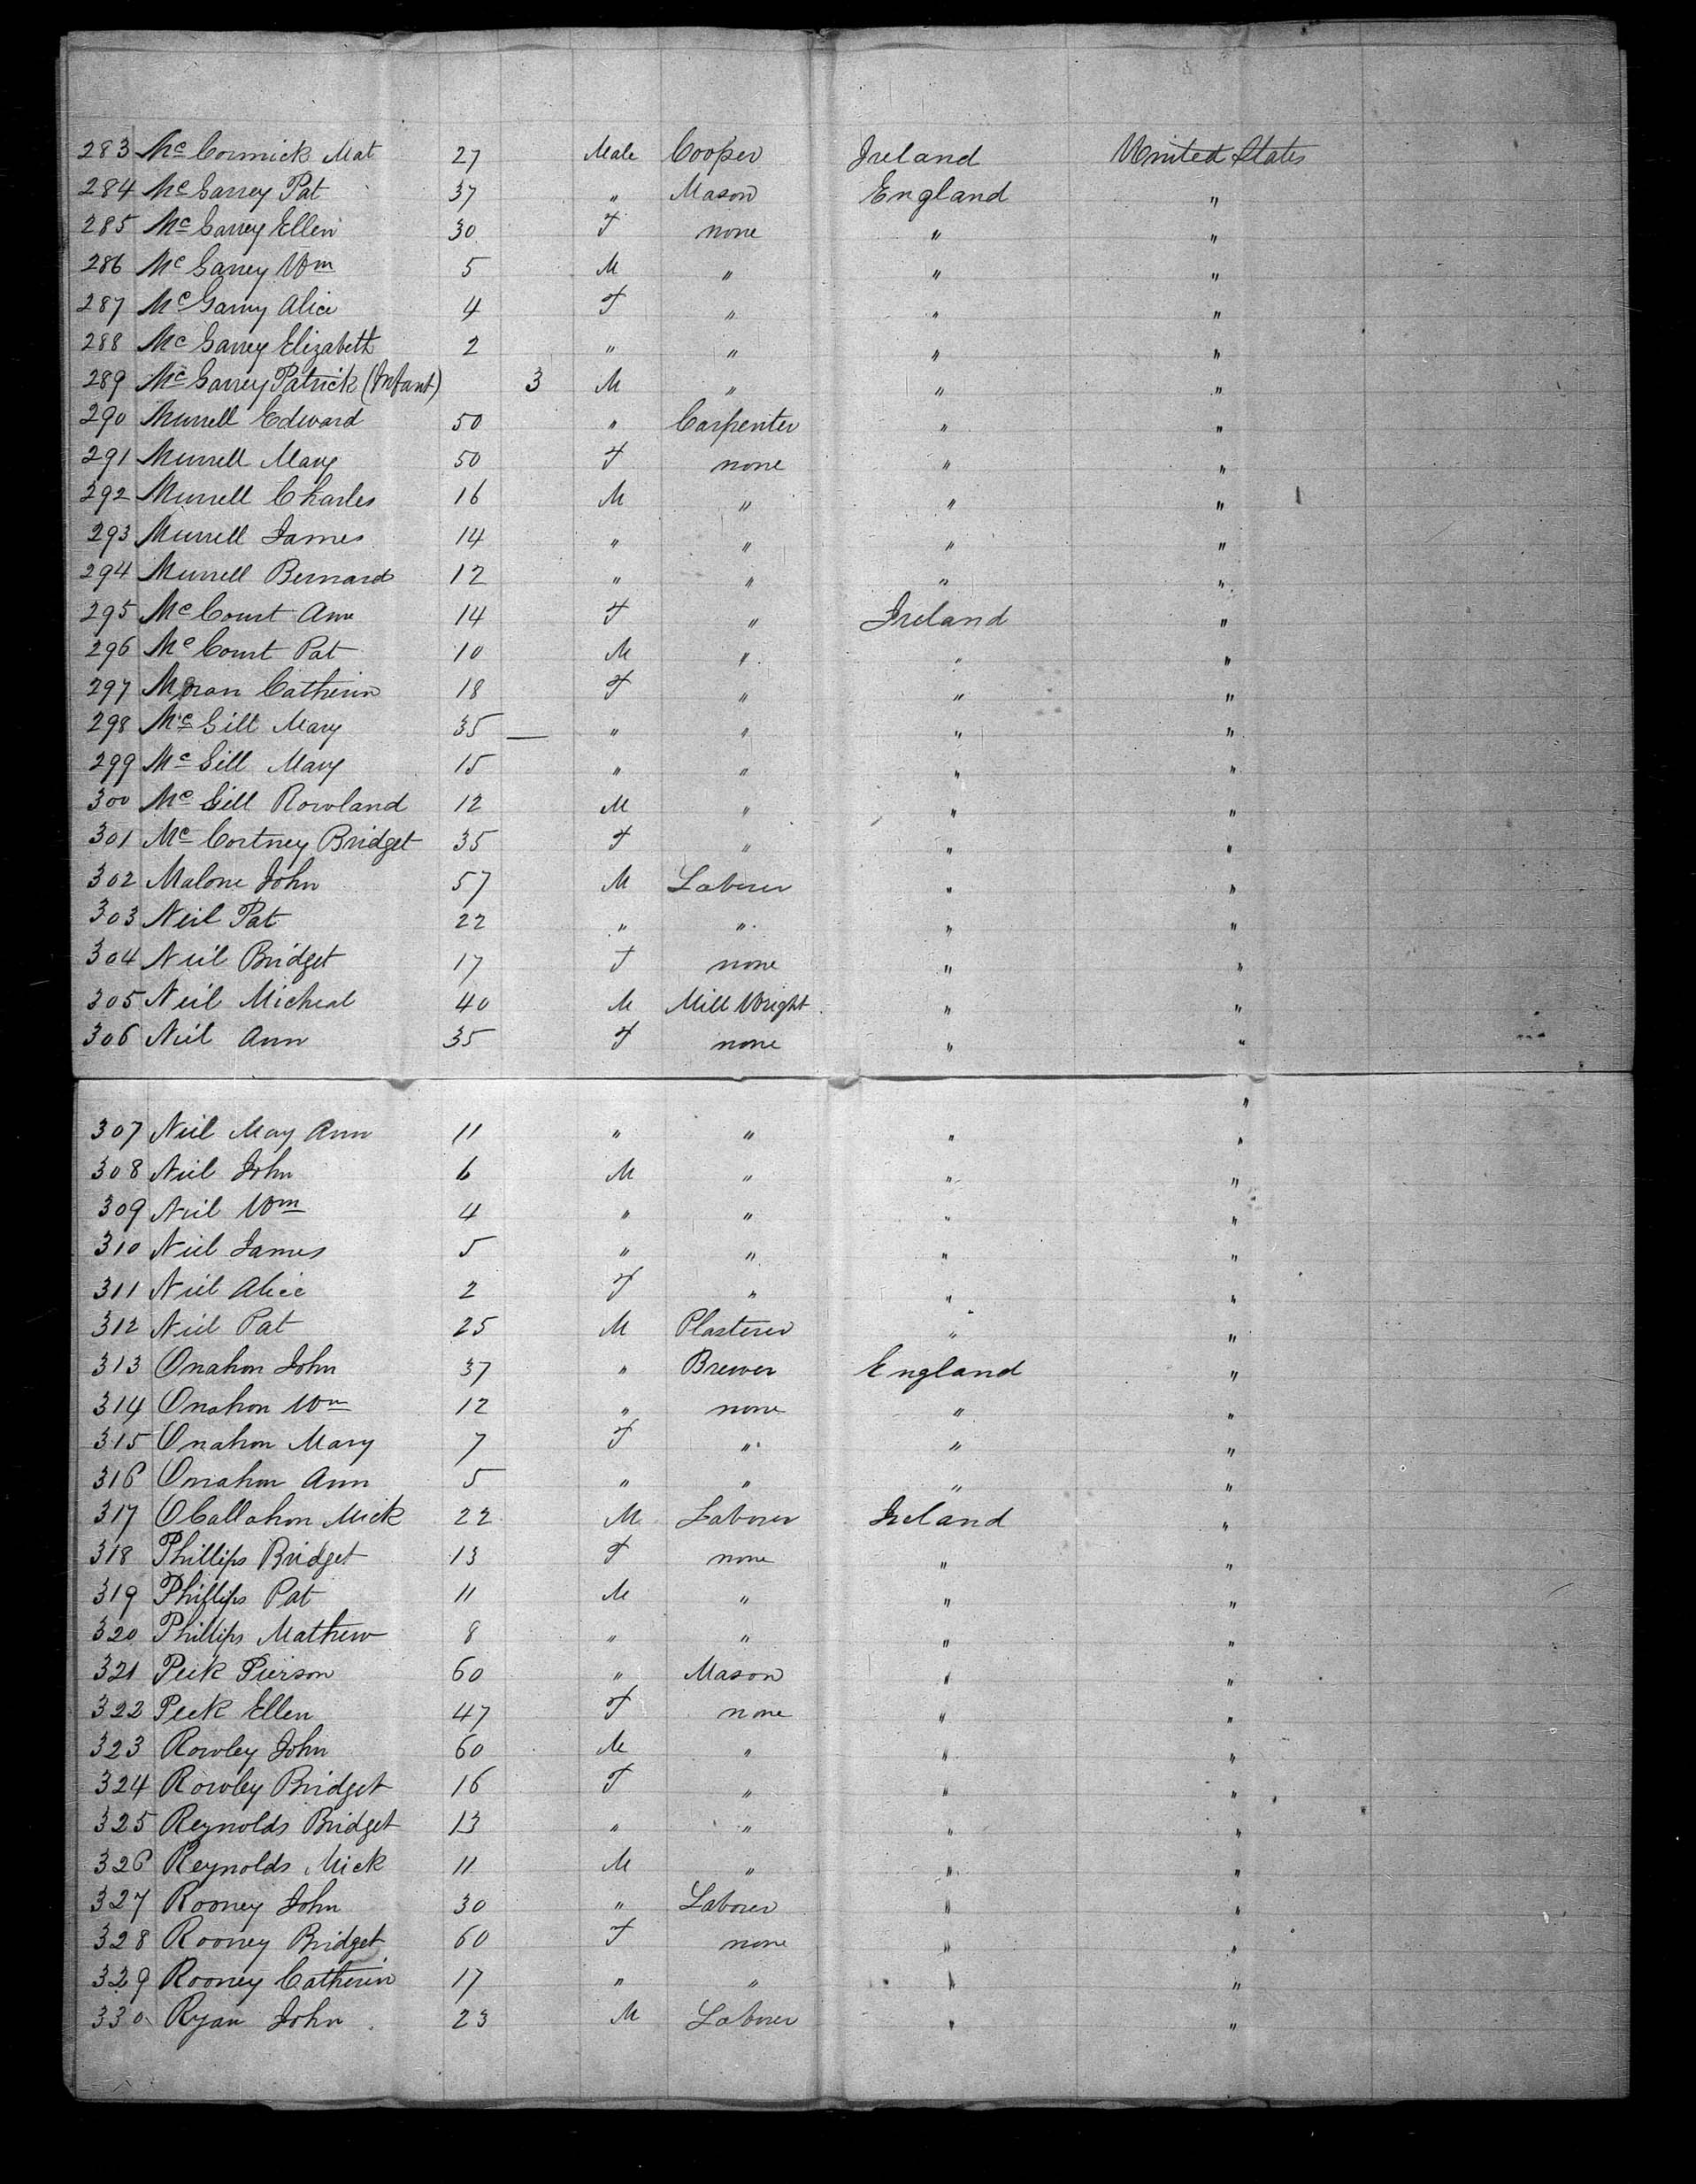 283 McCormick Mat 27 Male Cooper Ireland United States
284 McGarrey Pat 37 " Mason England "
285 McGarrey Ellen 30 F none " "
286 McGarrey Wm 5 M " " "
287 McGarrey Alice 4 F " " "
288 McGarrey Elizabeth 2 " " " "
289 McGarrey Patrick (Infant) 3 M " " "
290 Murrell Edward 50 " Carpenter " "
291 Murrell Mary 50 F none " "
292 Murrell Charles 16 M " " "
293 Murrell James 14 " " " "
294 Murrell Bernard 12 " " " "
295 McCourt Ann 14 F " Ireland "
296 McCourt Pat 10 M " " "
297 Moran Catherin 18 F " " "
298 McGill Mary 35 — " " " "
299 McGill Mary 15 " " " "
300 McGill Rowland 12 M " " "
301 McCortney Bridget 35 F " " "
302 Malone John 57 M Laborer " "
303 Neil Pat 22 " " " "
304 Neil Bridget 17 F none " "
305 Neil Micheal 40 M Mill Wright " "
306 Neil Ann 35 F none " "
"
307 Neil May Ann 11 " " " "
308 Neil John 6 M " " "
309 Neil Wm 4 " " " "
310 Neil James 5 " " " "
311 Neil Alice 2 F " " "
312 Neil Pat 25 M Plasterer " "
313 Onahon John 37 " Brewer England "
314 Onahon Wm 12 " none " "
315 Onahon Mary 7 F " " "
316 Onahon Ann 5 " " " "
317 OCallahon Mick 22 M Laborer Ireland "
318 Phillips Bridget 13 F none " "
319 Phillips Pat 11 M " " "
320 Phillips Mathew 8 " " " "
321 Peek Pierson 60 " Mason " "
322 Peek Ellen 47 F none " "
323 Rowley John 60 M " " "
324 Rowley Bridget 16 F " " "
325 Reynolds Bridget 13 " " " "
326 Reynolds Mick 11 M " " "
327 Rooney John 30 " Laborer " "
328 Rooney Bridget 60 F none " "
329 Rooney Catherin 17 " " " "
330 Ryan John 23 M Laborer " "